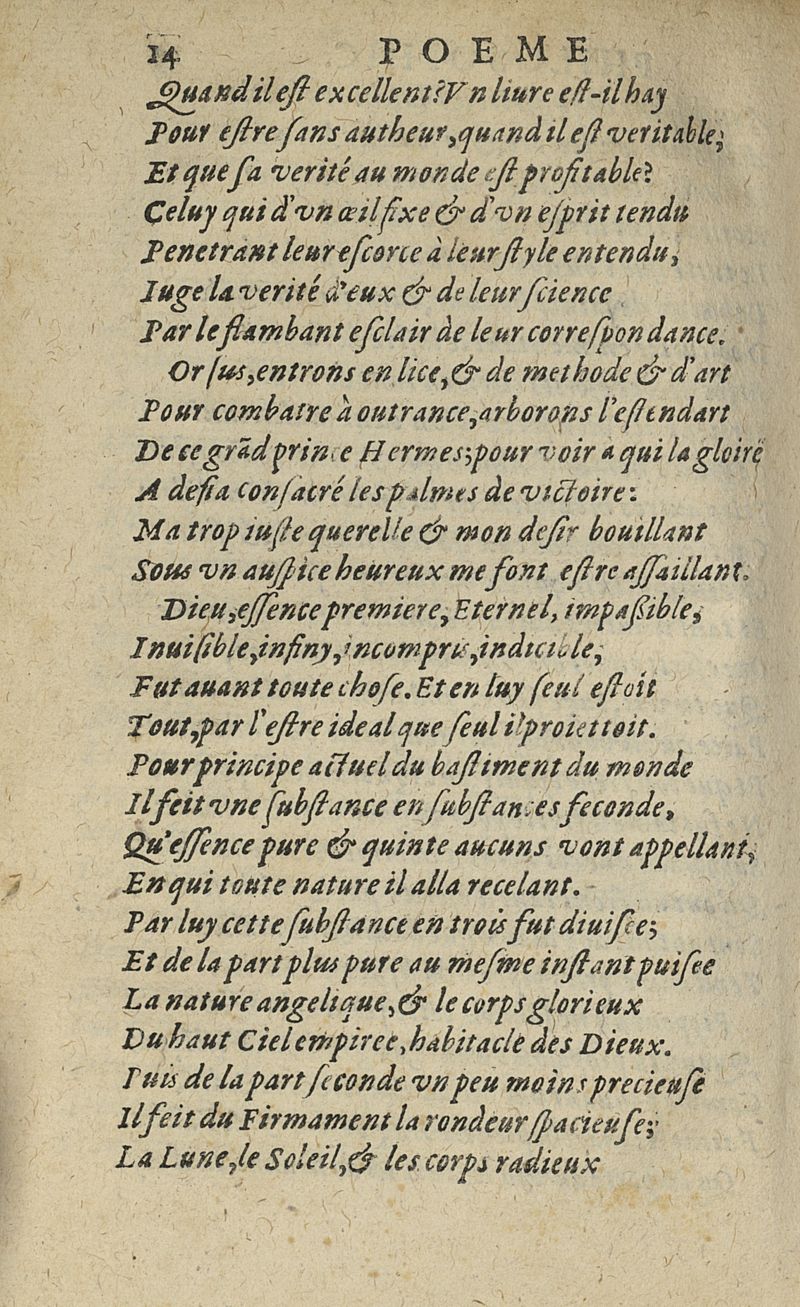 14 POEME
Quand il est excellent? Vn liure est-il hay
Pour estre sans autheur, quand il est veritable;
Et que sa verité au monde est profitable?
Celuy qui d'vn œil fixe & d'vn esprit tendu
Penetrant leur escorce à leur style entendu,
Iuge la verité d'eux & de leur science
Par le flambant esclair de leur correspondance.
Or sus, entrons en lice, & de methode & d'art
Pour combatre à outrance, arborons l'estendart
De ce grãd prince Hermes; pour voir a qui la gloire
A desia consacré les palmes de victoire:
Ma trop iuste querelle & mon desir bouillant
Sous vn auspice heureux me font estre assaillant.
Dieu, essence premiere, Eternel, impassible,
Inuisible, infiny, incompris, indicible,
Fut auant toute chose. Et en luy seul estoit
Tout, par l'estre ideal que seul il proiettoit.
Pour principe actuel du bastiment du monde
Il feit vne substance en substances feconde,
Qu'essence pure & quinte aucuns vont appellant,
En qui toute nature il alla recelant.
Par luy cette substance en trois fut diuisee;
Et de la part plus pure au mesme instant puisee
La nature angelique, & le corps glorieux
Du haut Ciel empiree, habitacle des Dieux.
Puis de la part seconde vn peu moins precieuse
Il feit du Firmament la rondeur spacieuse;
La Lune, le Soleil, & les corps radieux